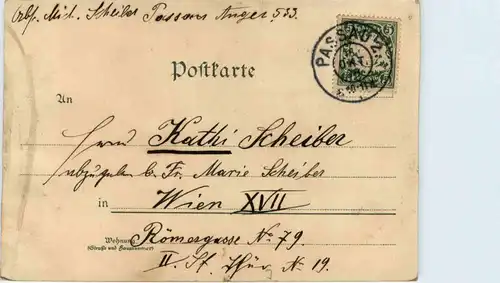 Mich. Scheiber Passau Anger 533
PASSAU 2.
5 5
Postkarte
An
Kathi Scheiber
abzugeben b. Fr. Marie Scheiber
in Wien XVII
Wohnung
(Straße und Hausnummer)
Römergasse No 79
II. St. Thür No 19.